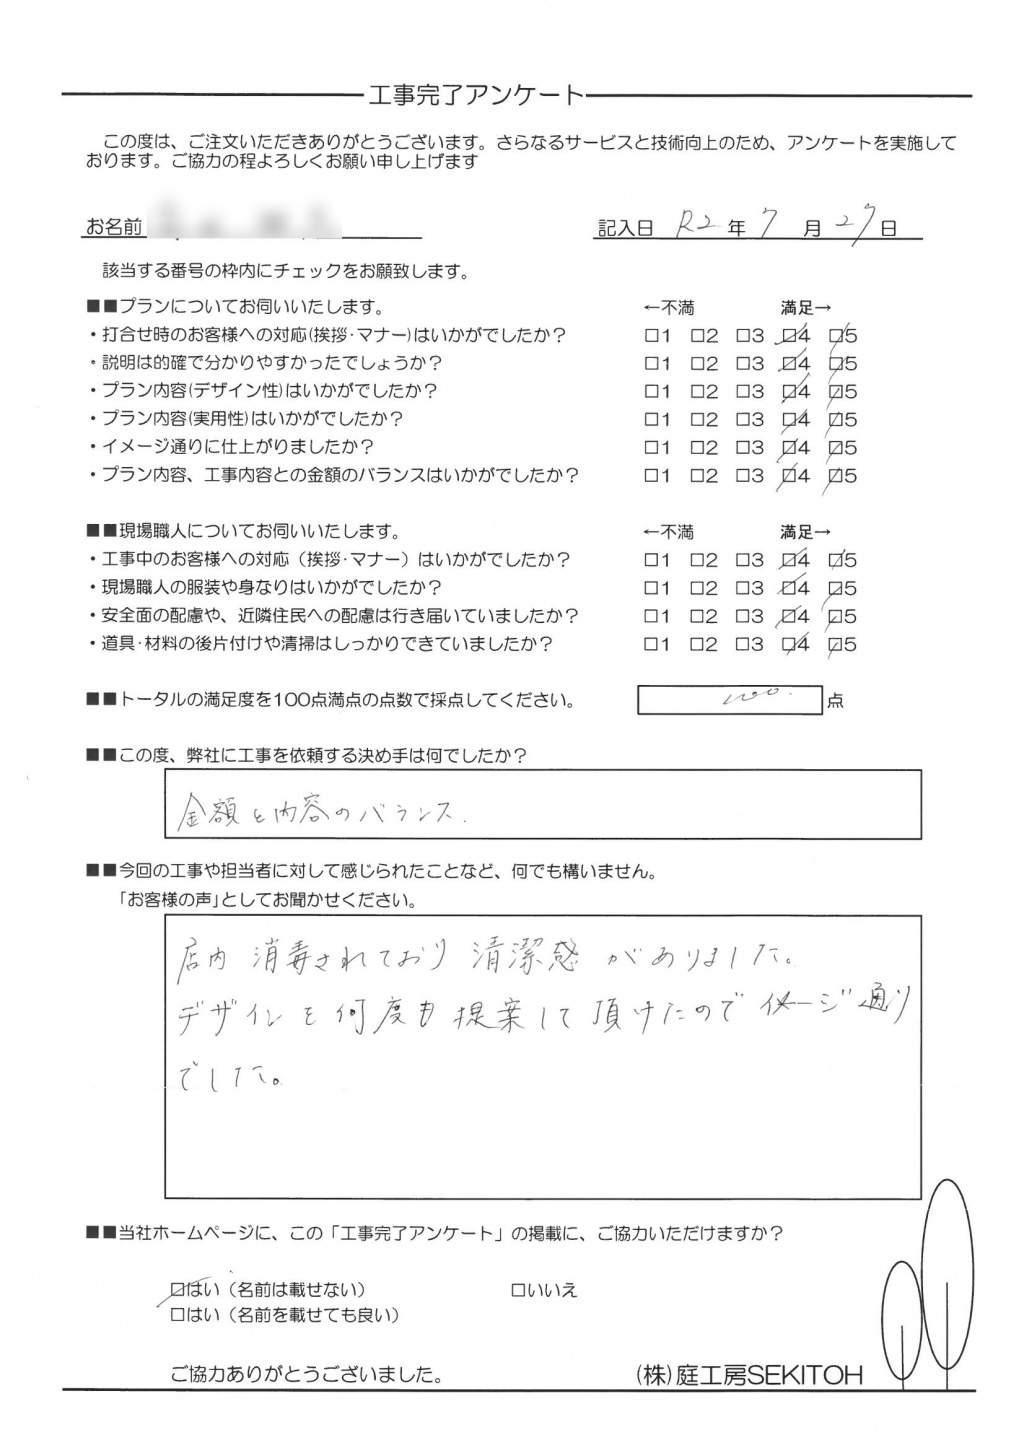 工事完了アンケート
この度は、ご注文いただきありがとうございます。さらなるサービスと技術向上のため、アンケートを実施して
おります。ご協力の程よろしくお願い申し上げます
お名前 記入日 R2年7月27日
該当する番号の枠内にチェックをお願致します。
■■プランについてお伺いいたします。 ←不満 満足→
・打合せ時のお客様への対応(挨拶・マナー)はいかがでしたか? □1 □2 □3 ☑4 ☑5
・説明は的確で分かりやすかったでしょうか? □1 □2 □3 ☑4 ☑5
・プラン内容(デザイン性)はいかがでしたか? □1 □2 □3 ☑4 ☑5
・プラン内容(実用性)はいかがでしたか? □1 □2 □3 ☑4 ☑5
・イメージ通りに仕上がりましたか? □1 □2 □3 ☑4 ☑5
・プラン内容、工事内容との金額のバランスはいかがでしたか? □1 □2 □3 ☑4 ☑5
■■現場職人についてお伺いいたします。 ←不満 満足→
・工事中のお客様への対応（挨拶・マナー）はいかがでしたか? □1 □2 □3 ☑4 ☑5
・現場職人の服装や身なりはいかがでしたか? □1 □2 □3 ☑4 ☑5
・安全面の配慮や、近隣住民への配慮は行き届いていましたか? □1 □2 □3 ☑4 ☑5
・道具・材料の後片付けや清掃はしっかりできていましたか? □1 □2 □3 ☑4 ☑5
■■トータルの満足度を100点満点の点数で採点してください。 100. 点
■■この度、弊社に工事を依頼する決め手は何でしたか?
金額と内容のバランス.
■■今回の工事や担当者に対して感じられたことなど、何でも構いません。
「お客様の声」としてお聞かせください。
店内 消毒されており 清潔感 がありました。
デザインを何度も提案して頂けたのでイメージ通り
でした。
■■当社ホームページに、この「工事完了アンケート」の掲載に、ご協力いただけますか?
☑はい（名前は載せない） □いいえ
□はい（名前を載せても良い）
ご協力ありがとうございました。 (株)庭工房SEKITOH